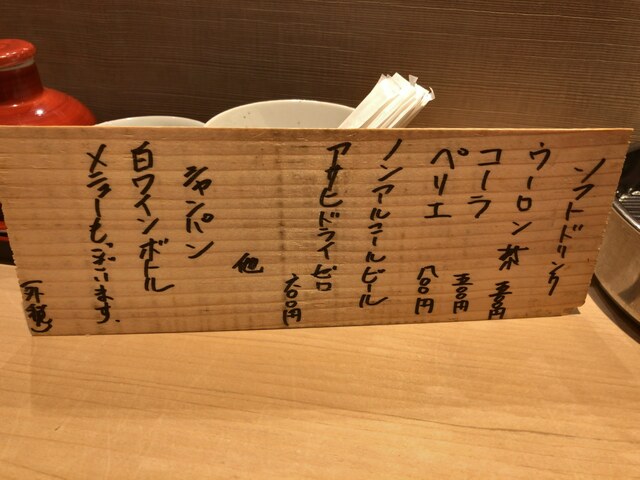 ソフトドリンク
ウーロン茶 五〇〇円
コーラ 五〇〇円
ペリエ 八〇〇円
ノンアルコールビール
アサヒドライゼロ 六〇〇円
他
シャンパン
白ワインボトル
メニューもございます。
(外税)